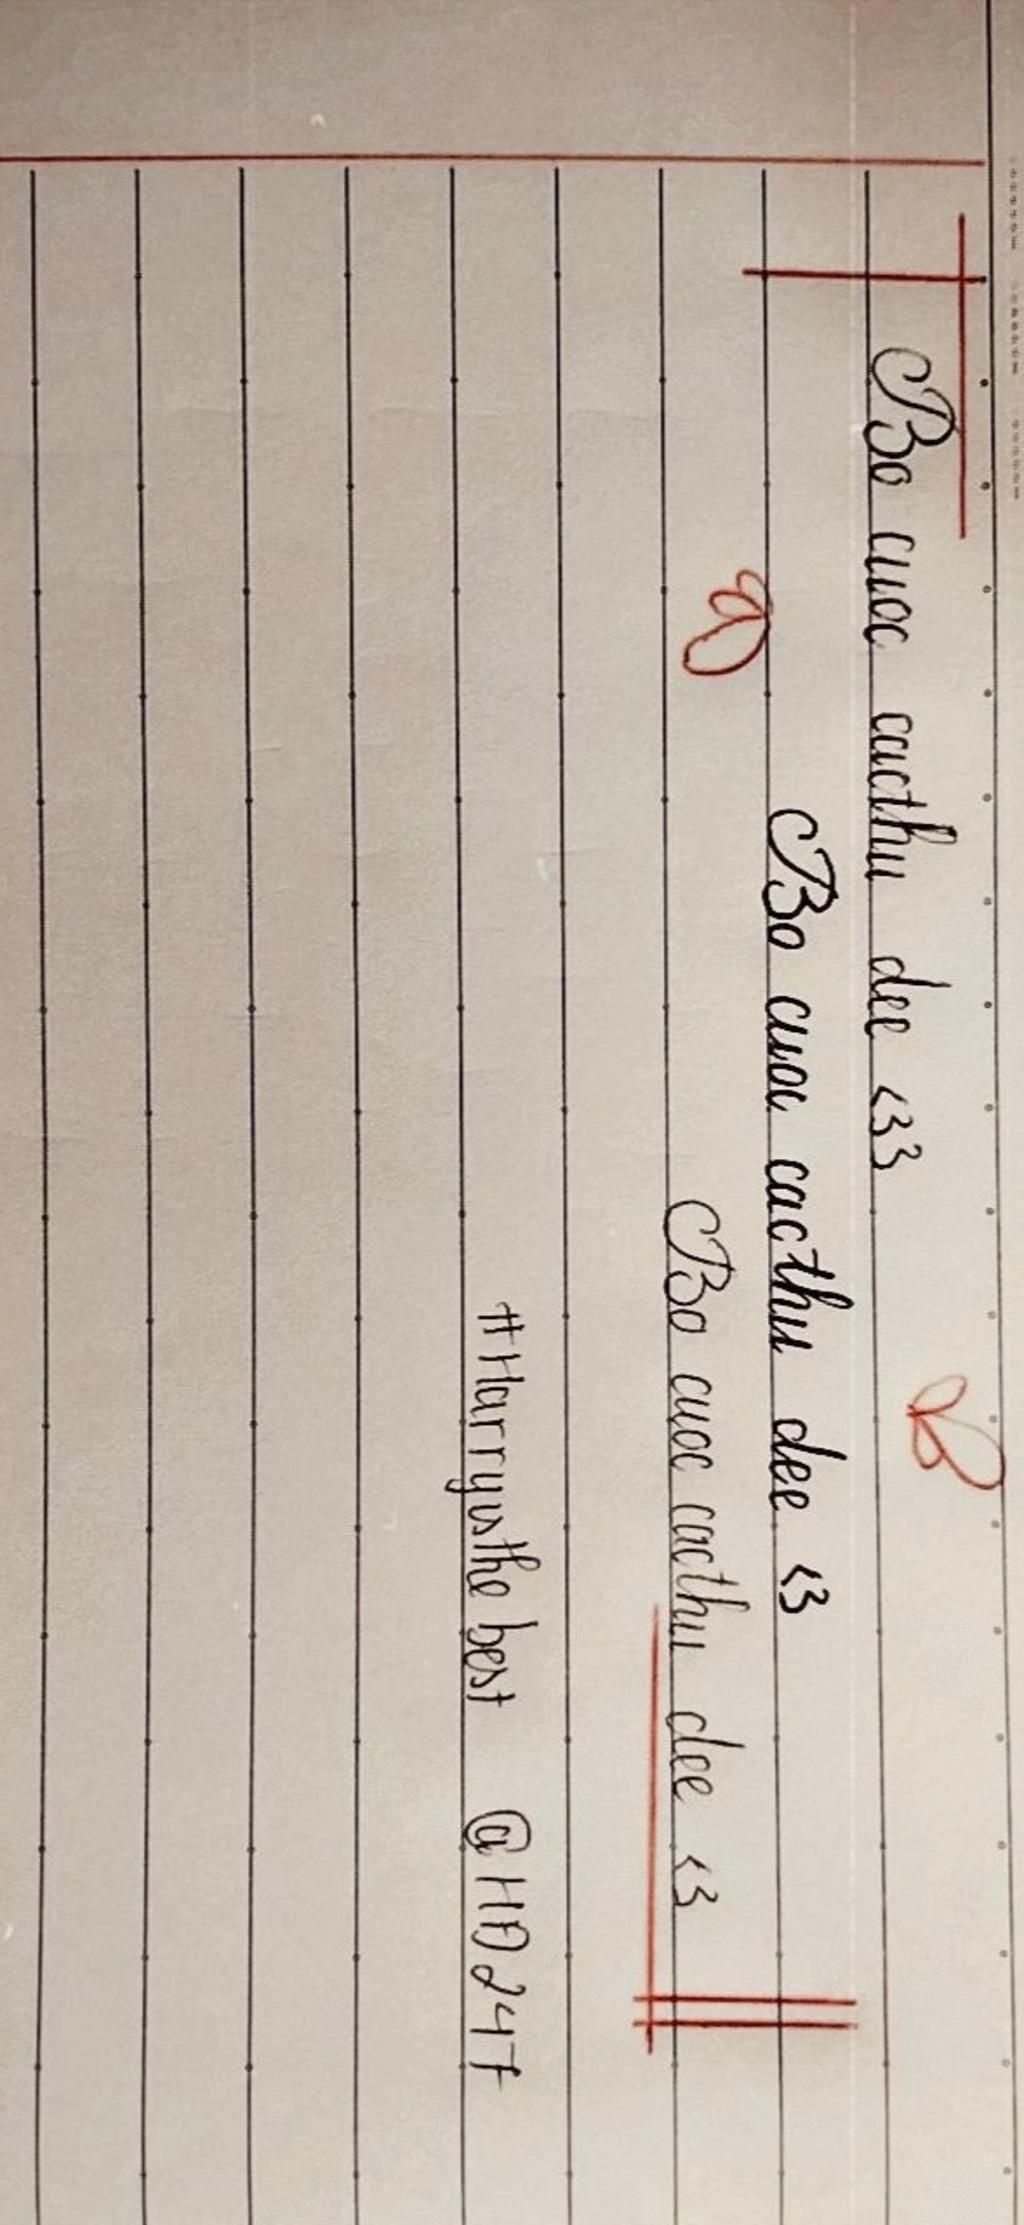 Bo cuoc cacthu dee <33
Bo cuoc cacthu dee <3
Bo cuoc cacthu dee <3
#Harryisthebest @HD247